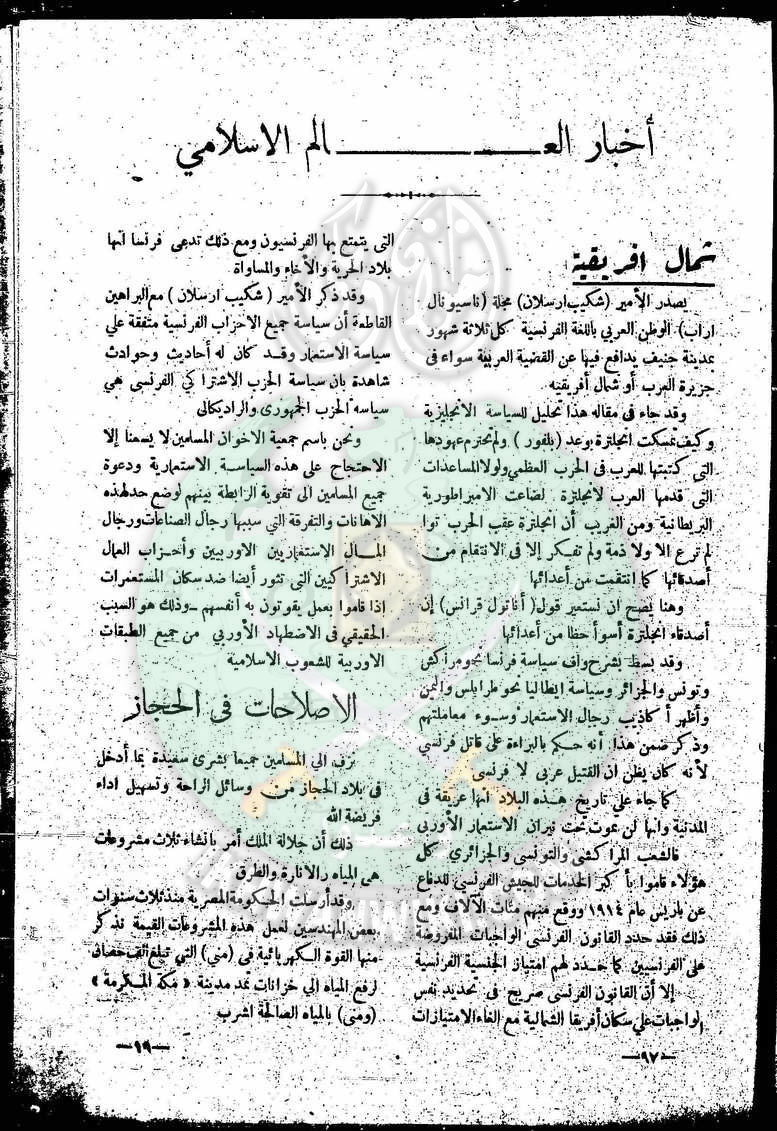 أخبار العـــالم الاسلامي
شمال افريقية
يصدر الأمير (شكيب ارسلان) مجلة (ناسيونال
اراب) الوطن العربي باللغة الفرنسية كل ثلاثة شهور
بمدينة جنيف يدافع فيها عن القضية العربية سواء فى
جزيرة العرب أو شمال أفريقيه
وقد جاء فى مقاله هذا تحليل للسياسة الانجليزية
وكيف تمسكت انجلترة بوعد (بلفور) ولم تحترم عهودها
التى كتبتها للعرب فى الحرب العظمي ولولا المساعدات
التى قدمها العرب لانجلترة لضاعت الامبراطورية
البريطانية ومن الغريب أن انجلترة عقب الحرب توا
لم ترع الا ولا ذمة ولم تفكر إلا فى الانتقام من
أصدقائها كما انتقمت من أعدائها
وهنا يصح ان نستعير قول (أناتول فرانس) إن
أصدقاء انجلترة أسوأ حظا من أعدائها
وقد بسط بشرح واف سياسة فرنسا نحو مراكش
وتونس والجزائر وسياسة ايطاليا نحو طرابلس واليمن
وأظهر أكاذيب رجال الاستعمار وسوء معاملتهم
وذكر ضمن هذا أنه حكم بالبراءة على قاتل فرنسي
لأنه كان يظن ان القتيل عربى لا فرنسى
كما جاء علي تاريخ هذه البلاد انها عريقة فى
المدنية وانها لن تموت تحت نيران الاستعمار الأوربى
فالشعب المراكشى والتونسى والجزائرى كل
هؤلاء قاموا بأكبر الخدمات للجيش الفرنسى للدفاع
عن باريس عام ١٩١٤ ووقع منهم مئات الآلاف ومع
ذلك فقد حدد القانون الفرنسى الواجبات المفروضة
على الفرنسيين كما حدد لهم امتياز الجنسية الفرنسية
إلا أن القانون الفرنسى صريح فى تحديد نفس
الواجبات علي سكان أفريقا الشمالية مع الغاء الامتيازات
—٩٧—
التى يتمتع بها الفرنسيون ومع ذلك تدعى فرنسا انها
بلاد الحرية والأخاء والمساواة
وقد ذكر الأمير (شكيب ارسلان) مع البراهين
القاطعة أن سياسة جميع الاحزاب الفرنسية متفقة علي
سياسة الاستعمار وقد كان له أحاديث وحوادث
شاهدة بان سياسة الحزب الاشتراكي الفرنسى هي
سياسه الحزب الجمهورى والراديكالى
ونحن باسم جمعية الاخوان المسلمين لا يسعنا إلا
الاحتجاج على هذه السياسة الاستعمارية ودعوة
جميع المسلمين الى تقوية الرابطة بينهم لوضع حد لهذه
الاهانات والتفرقة التى سببها رجال الصناعات ورجال
المال الاستعماريين الاوربيين وأحزاب العمال
الاشتراكيين التى تثور أيضا ضد سكان المستعمرات
إذا قاموا بعمل يقوتون به أنفسهم ـ وذلك هو السبب
الحقيقي فى الاضطهاد الأوربي من جميع الطبقات
الاوربية للشعوب الاسلامية
الاصلاحات فى الحجاز
نزف الي المسلمين جميعا بشرى سعيدة بما أدخل
فى بلاد الحجاز من وسائل الراحة وتسهيل اداء
فريضة الله
ذلك أن جلالة الملك أمر بانشاء ثلاث مشروعات
هى المياه والانارة والطرق
وقد أرسلت الحكومة المصرية منذ ثلاث سنوات
بعض المهندسين لعمل هذه المشروعات القيمة نذكر
منها القوة الكهربائية فى (منى) التي تبلغ ألف حصان
لرفع المياه الي خزانات تمد مدينة « مكة المكرمة »
(ومنى) بالمياه الصالحة لشرب
—١٩—